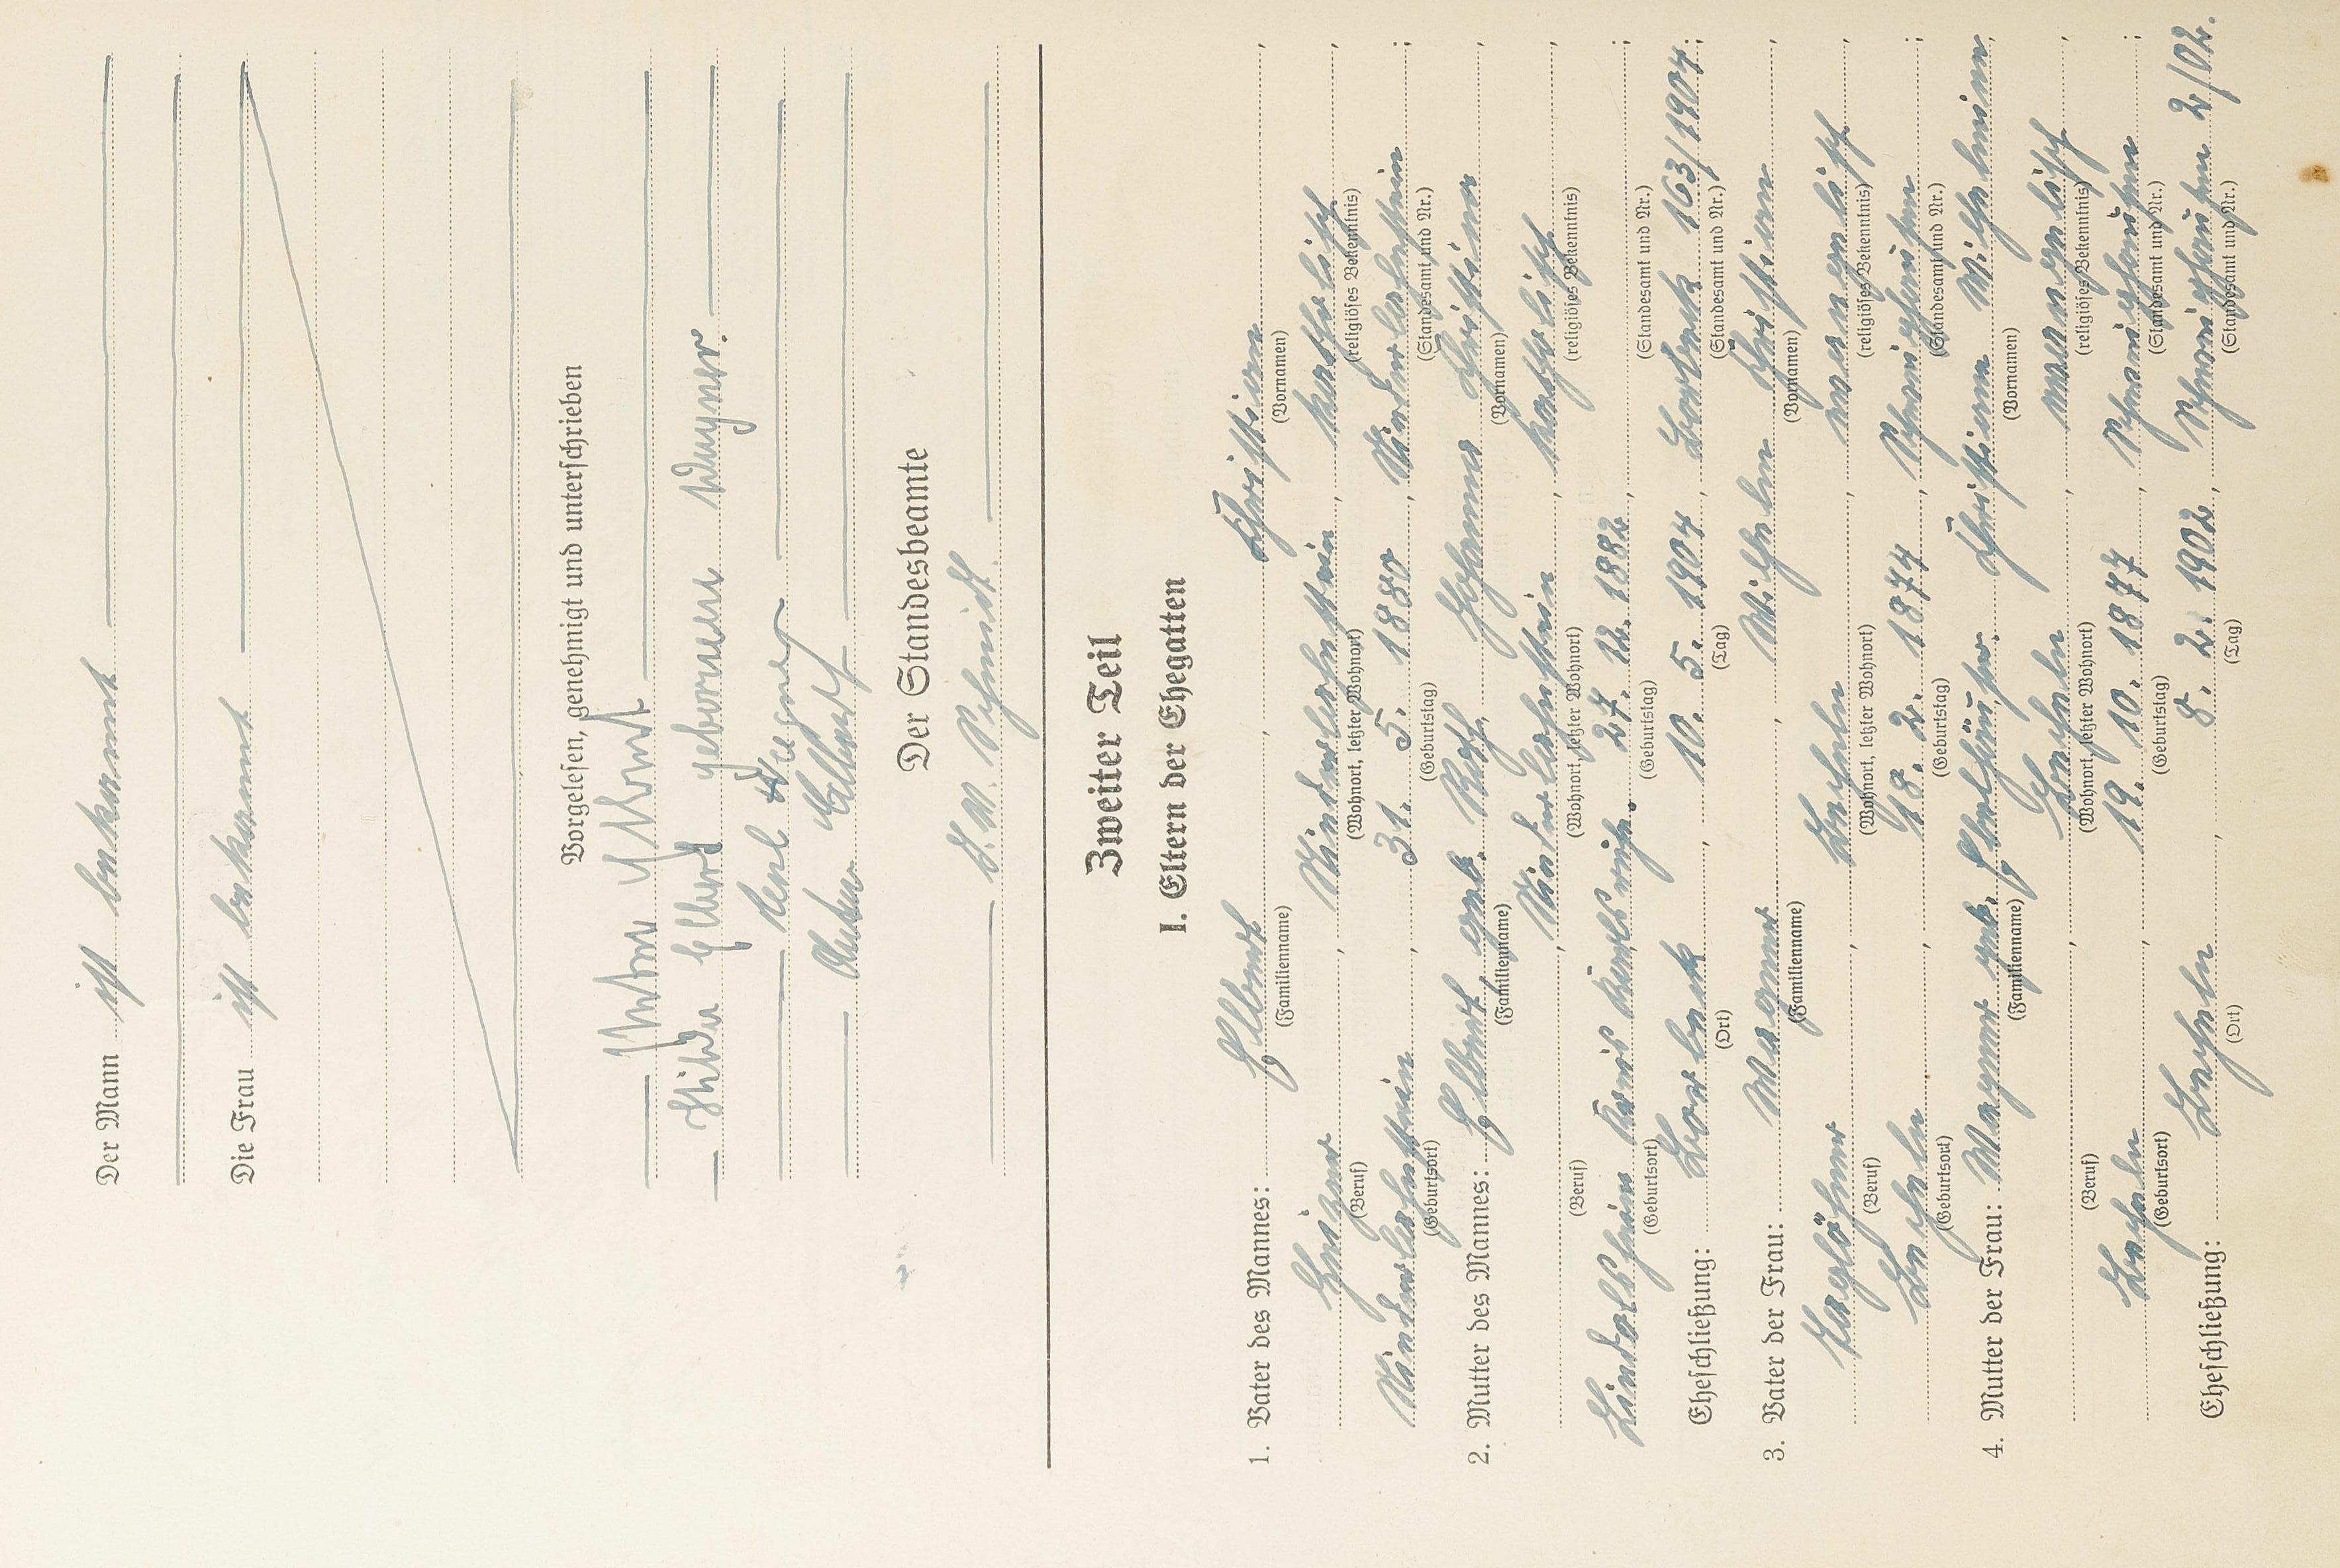 Der Mann ist bekannt
Die Frau ist bekannt
Vorgelesen, genehmigt und unterschrieben
Elbert
Hilda Elbert geborene Wagner.
Karl Wagner
Elbert
Der Standesbeamte
J. V. Schmidt
Zweiter Teil
I. Eltern der Ehegatten
1. Vater des Mannes: Elbert, Christian,
(Familienname) (Vornamen)
Heizer, Niederlahnstein, katholisch,
(Beruf) (Wohnort, letzter Wohnort) (religiöses Bekenntnis)
Niederlahnstein, 31. 5. 1880, Niederlahnstein;
(Geburtsort) (Geburtstag) (Standesamt und Nr.)
2. Mutter des Mannes: Elbert geb. Roth, Johanna Christina,
(Familienname) (Vornamen)
Niederlahnstein, katholisch,
(Beruf) (Wohnort, letzter Wohnort) (religiöses Bekenntnis)
Lindolsheim Kreis Karlsruhe. 27. 12. 1882,;
(Geburtsort) (Geburtstag) (Standesamt und Nr.)
Eheschließung: Borbeck, 10. 5. 1904, Borbeck 163/1904;
(Ort) (Tag) (Standesamt und Nr.)
3. Vater der Frau: Wagner, Wilhelm Christian,
(Familienname) (Vornamen)
Taglöhner, Becheln, evangelisch,
(Beruf) (Wohnort, letzter Wohnort) (religiöses Bekenntnis)
Becheln, 18. 2. 1874, Schweighausen;
(Geburtsort) (Geburtstag) (Standesamt und Nr.)
4. Mutter der Frau: Wagner geb. Christiane Wilhelmine,
(Familienname) (Vornamen)
Becheln, evangelisch,
(Beruf) (Wohnort, letzter Wohnort) (religiöses Bekenntnis)
Becheln, 19. 10. 1877, Schweighausen;
(Geburtsort) (Geburtstag) (Standesamt und Nr.)
Eheschließung: Becheln, 8. 2. 1902, Schweighausen 2/02.
(Ort) (Tag) (Standesamt und Nr.)